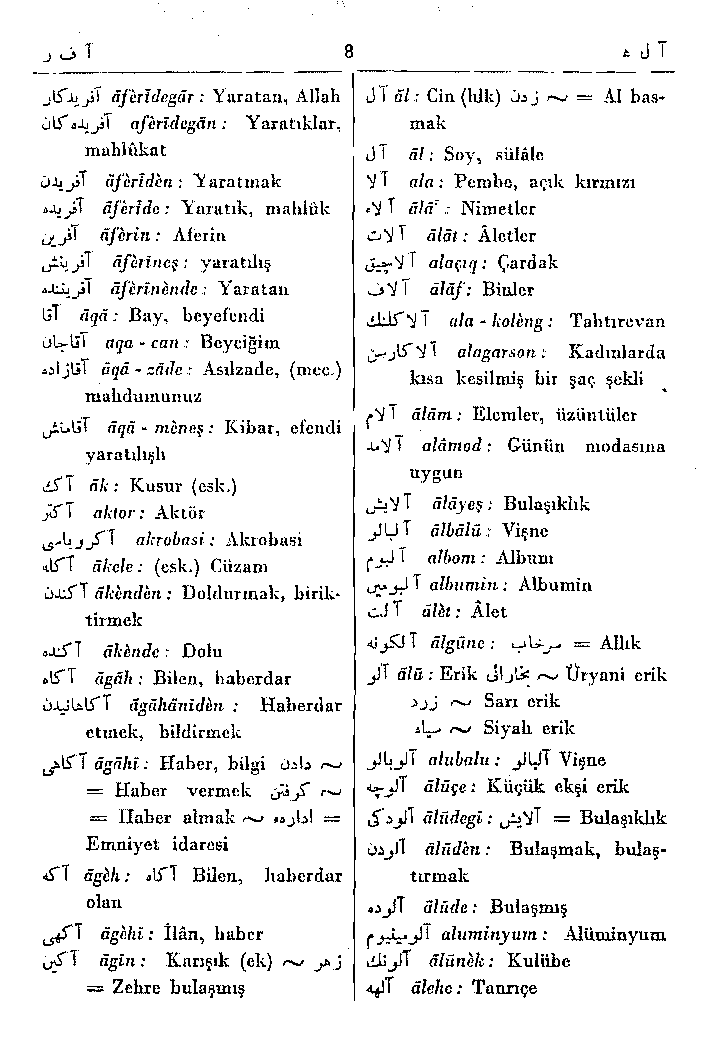 آ ف ر 8 آ ل ـه
آفریدگار āferīdegār : Yaratan, Allah
آفریده‌گان aferīdegān : Yaratıklar,
mahlûkat
آفریدن āferīdèn : Yaratmak
آفریده āferîde : Yaratık, mahlûk
آفرین āferin : Aferin
آفرینش āferineş : yaratılış
آفریننده āferinènde : Yaratan
آقا āqā : Bay, beyefendi
آقاجان aqa - can : Beyciğim
آقازاده āqā - zāde : Asılzade, (mec.)
mahdumunuz
آقامنش āqā - mèneş : Kibar, efendi
yaratılışlı
آك āk : Kusur (esk.)
آكتر aktor : Aktör
آكروباسی akrobasi : Akrobasi
آكله ākele : (esk.) Cüzam
آكندن ākèndèn : Doldurmak, birik-
tirmek
آكنده ākènde : Dolu
آگاه āgāh : Bilen, haberdar
آگاهانیدن āgāhānidèn : Haberdar
etmek, bildirmek
آگاهی āgāhī : Haber, bilgi دادن ~
= Haber vermek گرفتن ~
= Haber almak ~ اداره =
Emniyet idaresi
آگه āgèh : آگاه Bilen, haberdar
olan
آگهی āgèhī : İlân, haber
آگین āgīn : Karışık (ek) ~ زهر
= Zehre bulaşmış
آل āl : Cin (hlk) زدن ~ = Al bas-
mak
آل āl : Soy, sülâle
آلا ala : Pembe, açık kırmızı
آلاء ālā' : Nimetler
آلات ālāt : Âletler
آلاچیق alaçıq : Çardak
آلاف ālāf : Binler
آلاكلنك ala - kolèng : Tahtırevan
آلاگارسن alagarson : Kadınlarda
kısa kesilmiş bir şaç şekli
آلام ālām : Elemler, üzüntüler
آلامد alâmod : Günün modasına
uygun
آلایش ālāyeş : Bulaşıklık
آلبالو ālbālū : Vişne
آلبوم albom : Album
آلبومین albumin : Albumin
آلت ālèt : Âlet
آلگونه ālgūne : سرخاب = Allık
آلو ālū : Erik بخارائی ~ Üryani erik
زرد ~ Sarı erik
سیاه ~ Siyah erik
آلوبالو alubalu : آلبالو Vişne
آلوچه ālūçe : Küçük ekşi erik
آلودگی ālūdegī : آلایش = Bulaşıklık
آلودن ālūdèn : Bulaşmak, bulaş-
tırmak
آلوده ālūde : Bulaşmış
آلومینیوم aluminyum : Alüminyum
آلونك ālūnèk : Kulübe
آلهه ālehe : Tanrıçe